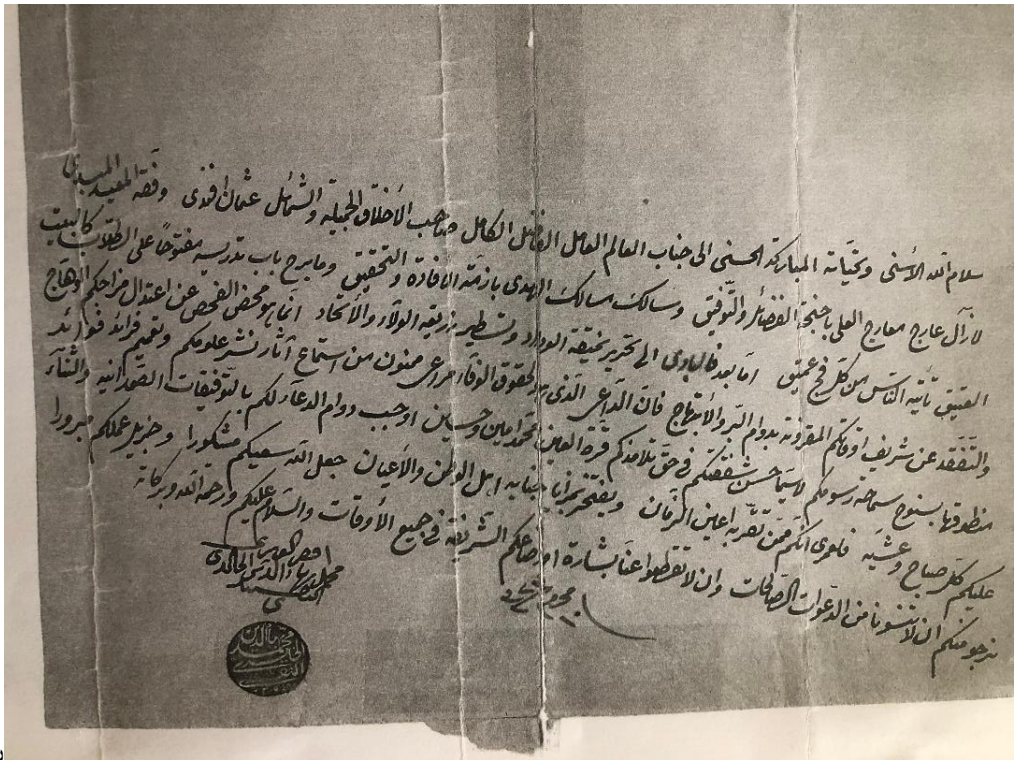 سلام الله الأسنى وتحياته المباركة الحسنى الى جناب العالم العامل الفاضل الكامل صاحب الأخلاق الجميلة والشمائل عثمان افندى وفقه المعيد المبدى
لا زال عارج معارج العلى باجنحة الفضائل والتوفيق وسالك مسالك الهدى بازمة الافادة والتحقيق وما برح باب تدريسه مفتوحا على الطلاب كالبيت
العتيق تأتيه الناس من كل فج عميق اما بعد فالبادى الى تحرير نميقة الوداد وتسطير زريعة الولاء والأتحاد انما هو محض الفحص عن اعتدال مزاجكم الوهاج
والتفقد عن شريف اوقاتكم المقرونة بدوام البر والأبتهاج فان الداعى الذى هو لحقوق الوفاء مراعى ممنون من استماع آثار نشر علومكم وتعميم فرائد فوائد
منطوقها بسنوح سماحة رسومكم لا سيما حسن شفقتكم فى حق تلامذكم قرة العين محمد امين وحسين اوجب دوام الدعاء لكم بالتوفيقات الصمدانية والثناء
عليكم كل صباح وعشية فلعمرى انكم ممن تقر به اعين الزمان ويفتخر بمزايا جنابه اهل الوطن والأعيان جعل الله سعيكم مشكورا وجزيل عملكم مبرورا
نرجو منكم ان لا تنسونا من الدعوات الصالحات وان لا تقطعوا عنا بشارة اوضاعكم الشريفة فى جميع الأوقات والسلام عليكم ورحمة الله وبركاته
محمد بهاء الدين الخالدى
النقشبندى